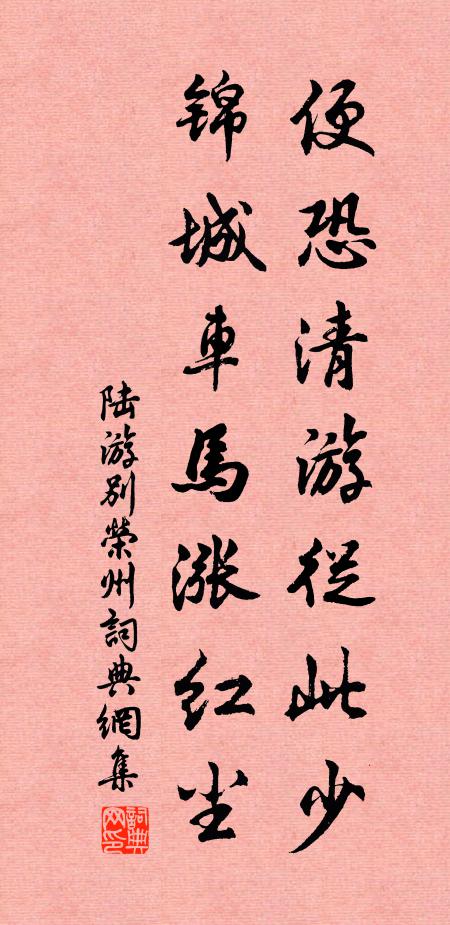 便恐清游從此少
錦城車馬漲紅尘
陆游别榮州詞典網集
詞典網印